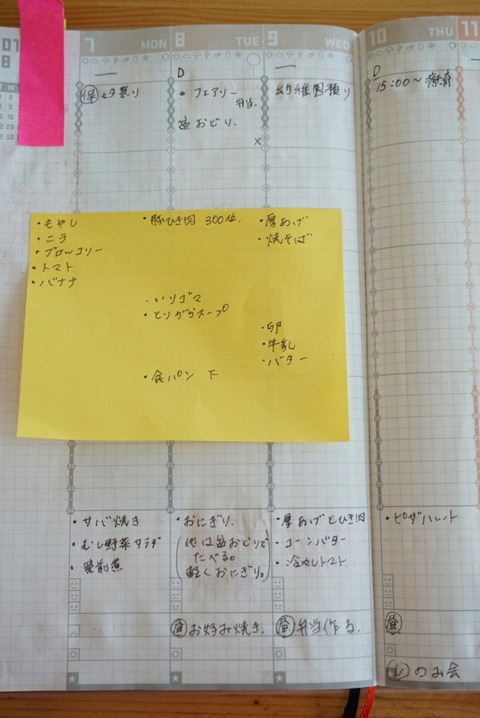 7 MON
8 TUE
9 WED
10 THU
11
D
・フェアリー
弁当
盆おどり.
幼稚園種り
D
15:00〜療育
・もやし
・ニラ
・ブロッコリー
・トマト
・バナナ
・豚ひき肉 300位.
・いりゴマ
・とりがらスープ
・食パン 下
・厚あげ
・焼そば
・卵
・牛乳
・バター
・サバ焼き
・むし野菜サラダ
・筑前煮
・おにぎり.
(他は盆おどりで
たべる。
軽くおにぎり。)
昼 お好み焼き.
・厚あげとひき肉
・コーンバター
・冷やしトマト
昼 弁当作る.
・ピザハット
昼
し のみ会